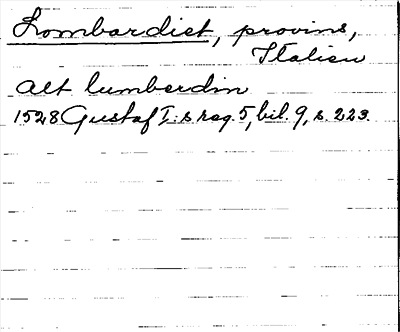 Lombardiet, provins,
Italien
alt lumberdin
1528 Gustaf I:s reg. 5, bil. 9, s. 223.